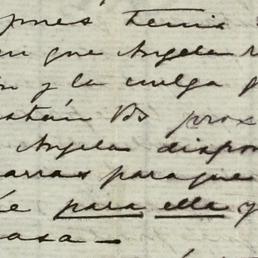 pones tenia
en que Angela
n y la cuelga
están Bs prox
Angela dispon
arras para que
para ella y
casa —